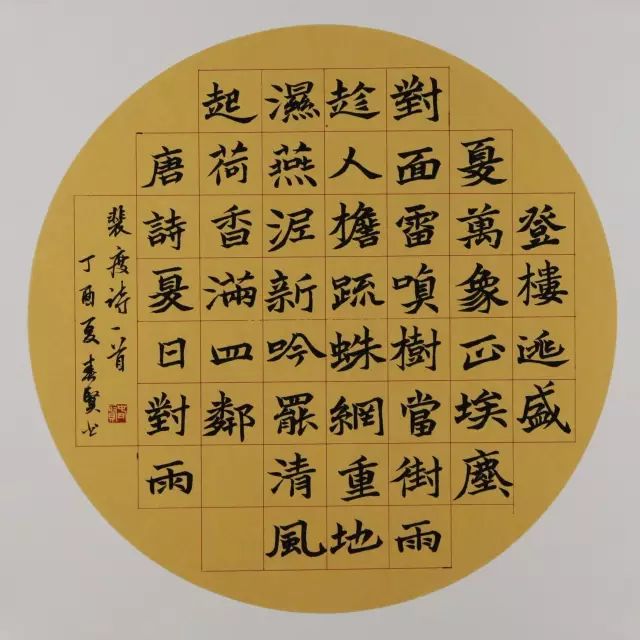 登樓逃盛
夏萬象正埃塵
對面雷嗔樹當街雨
趁人檐疏蛛網重地
濕燕泥新吟罷清風
起荷香滿四鄰
唐詩夏日對雨
裴度诗一首
丁酉夏春賢书